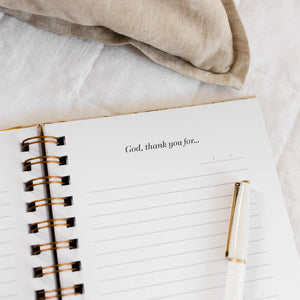 God, thank you for...
/ /